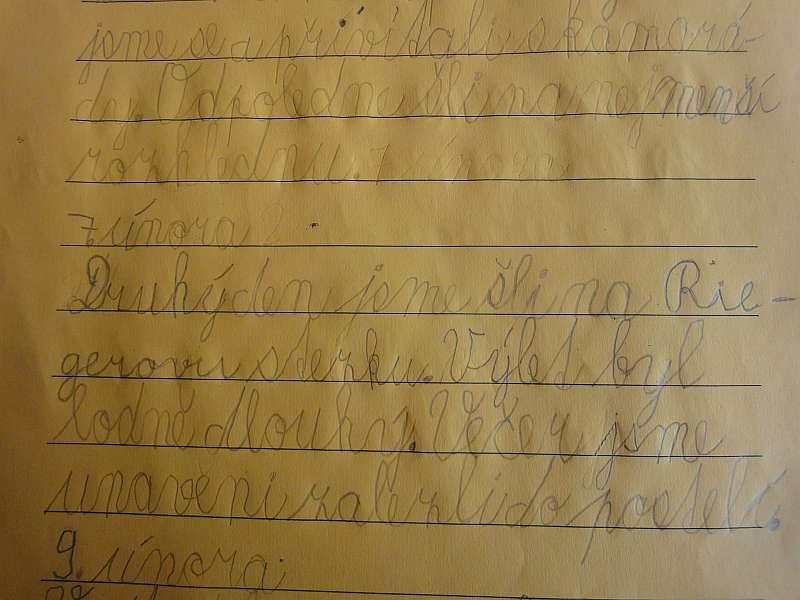 jsme se a přivítali s kamará-
dy. Odpoledne šli na nejmenší
rozhlednu. 7 února
7 února
Druhý den jsme šli na Rie-
gerovu stezku. Výlet byl
hodně dlouhý. Večer jsme
unaveni zalezli do postelí.
9. února